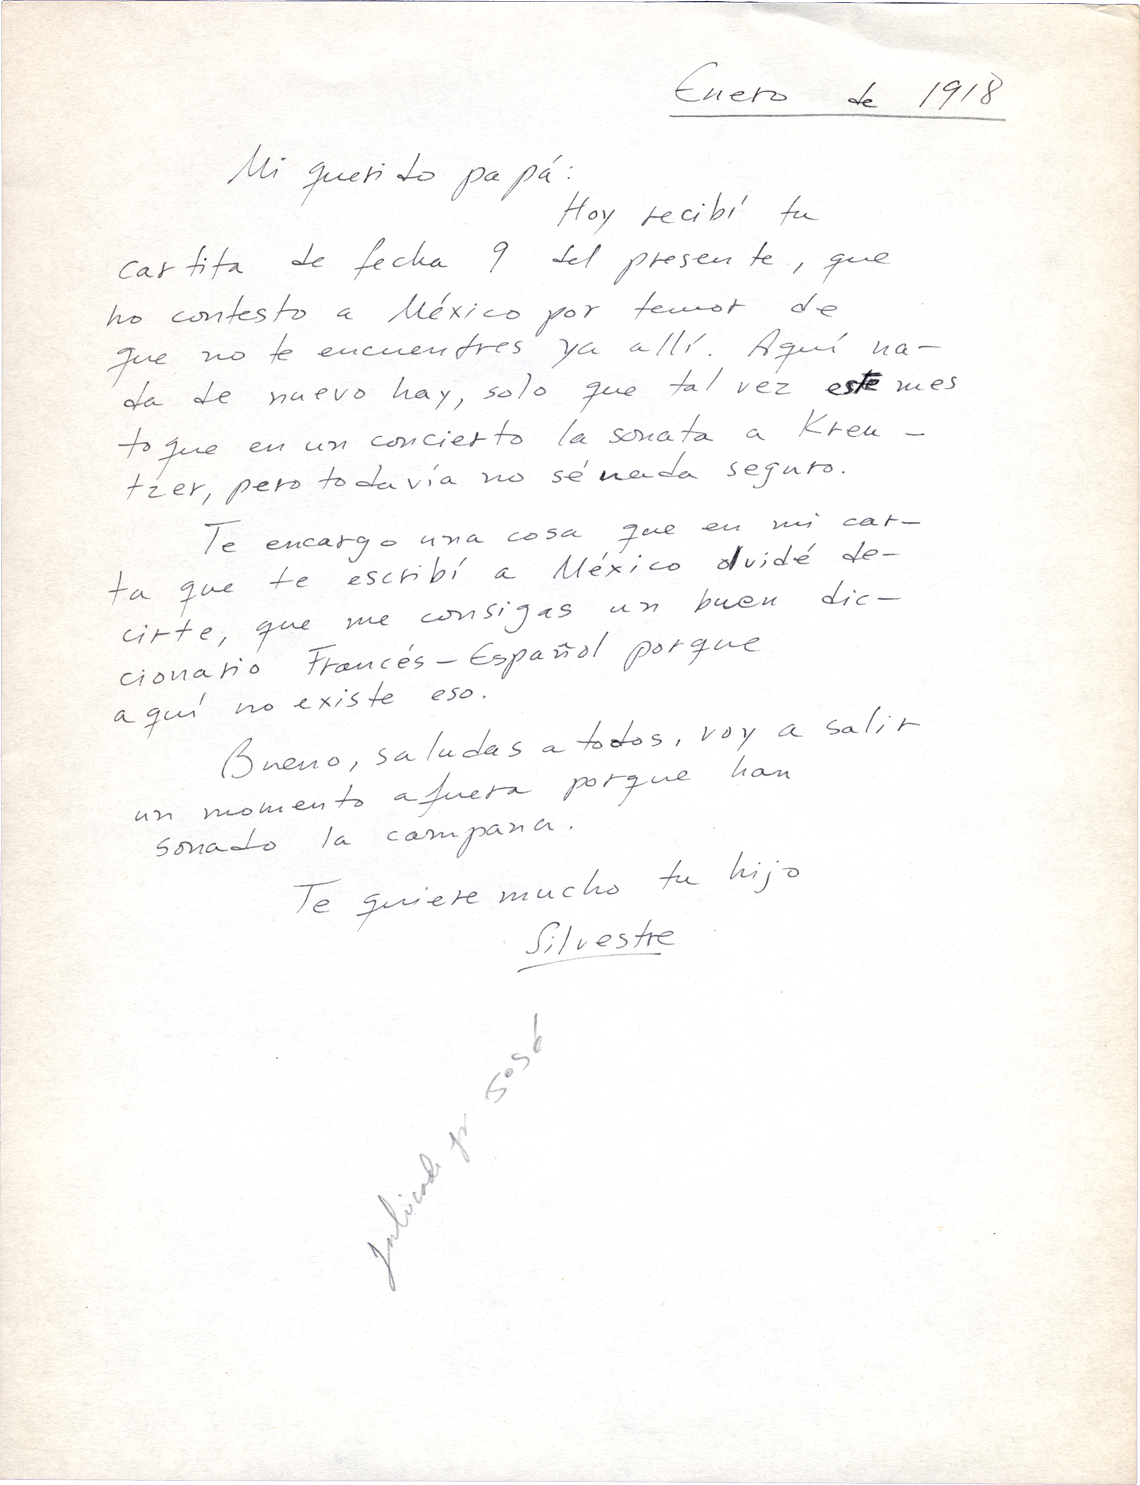 Enero de 1918
Mi querido papá:
Hoy recibí tu
cartita de fecha 9 del presente, que
no contesto a México por temor de
que no te encuentres ya allí. Aquí na-
da de nuevo hay, solo que tal vez este mes
toque en un concierto la sonata a Kreu-
tzer, pero todavía no sé nada seguro.
Te encargo una cosa que en mi car-
ta que te escribí a México olvidé de-
cirte, que me consigas un buen dic-
cionario Francés-Español porque
aquí no existe eso.
Bueno, saludas a todos, voy a salir
un momento afuera porque han
sonado la campana.
Te quiere mucho tu hijo
Silvestre
José